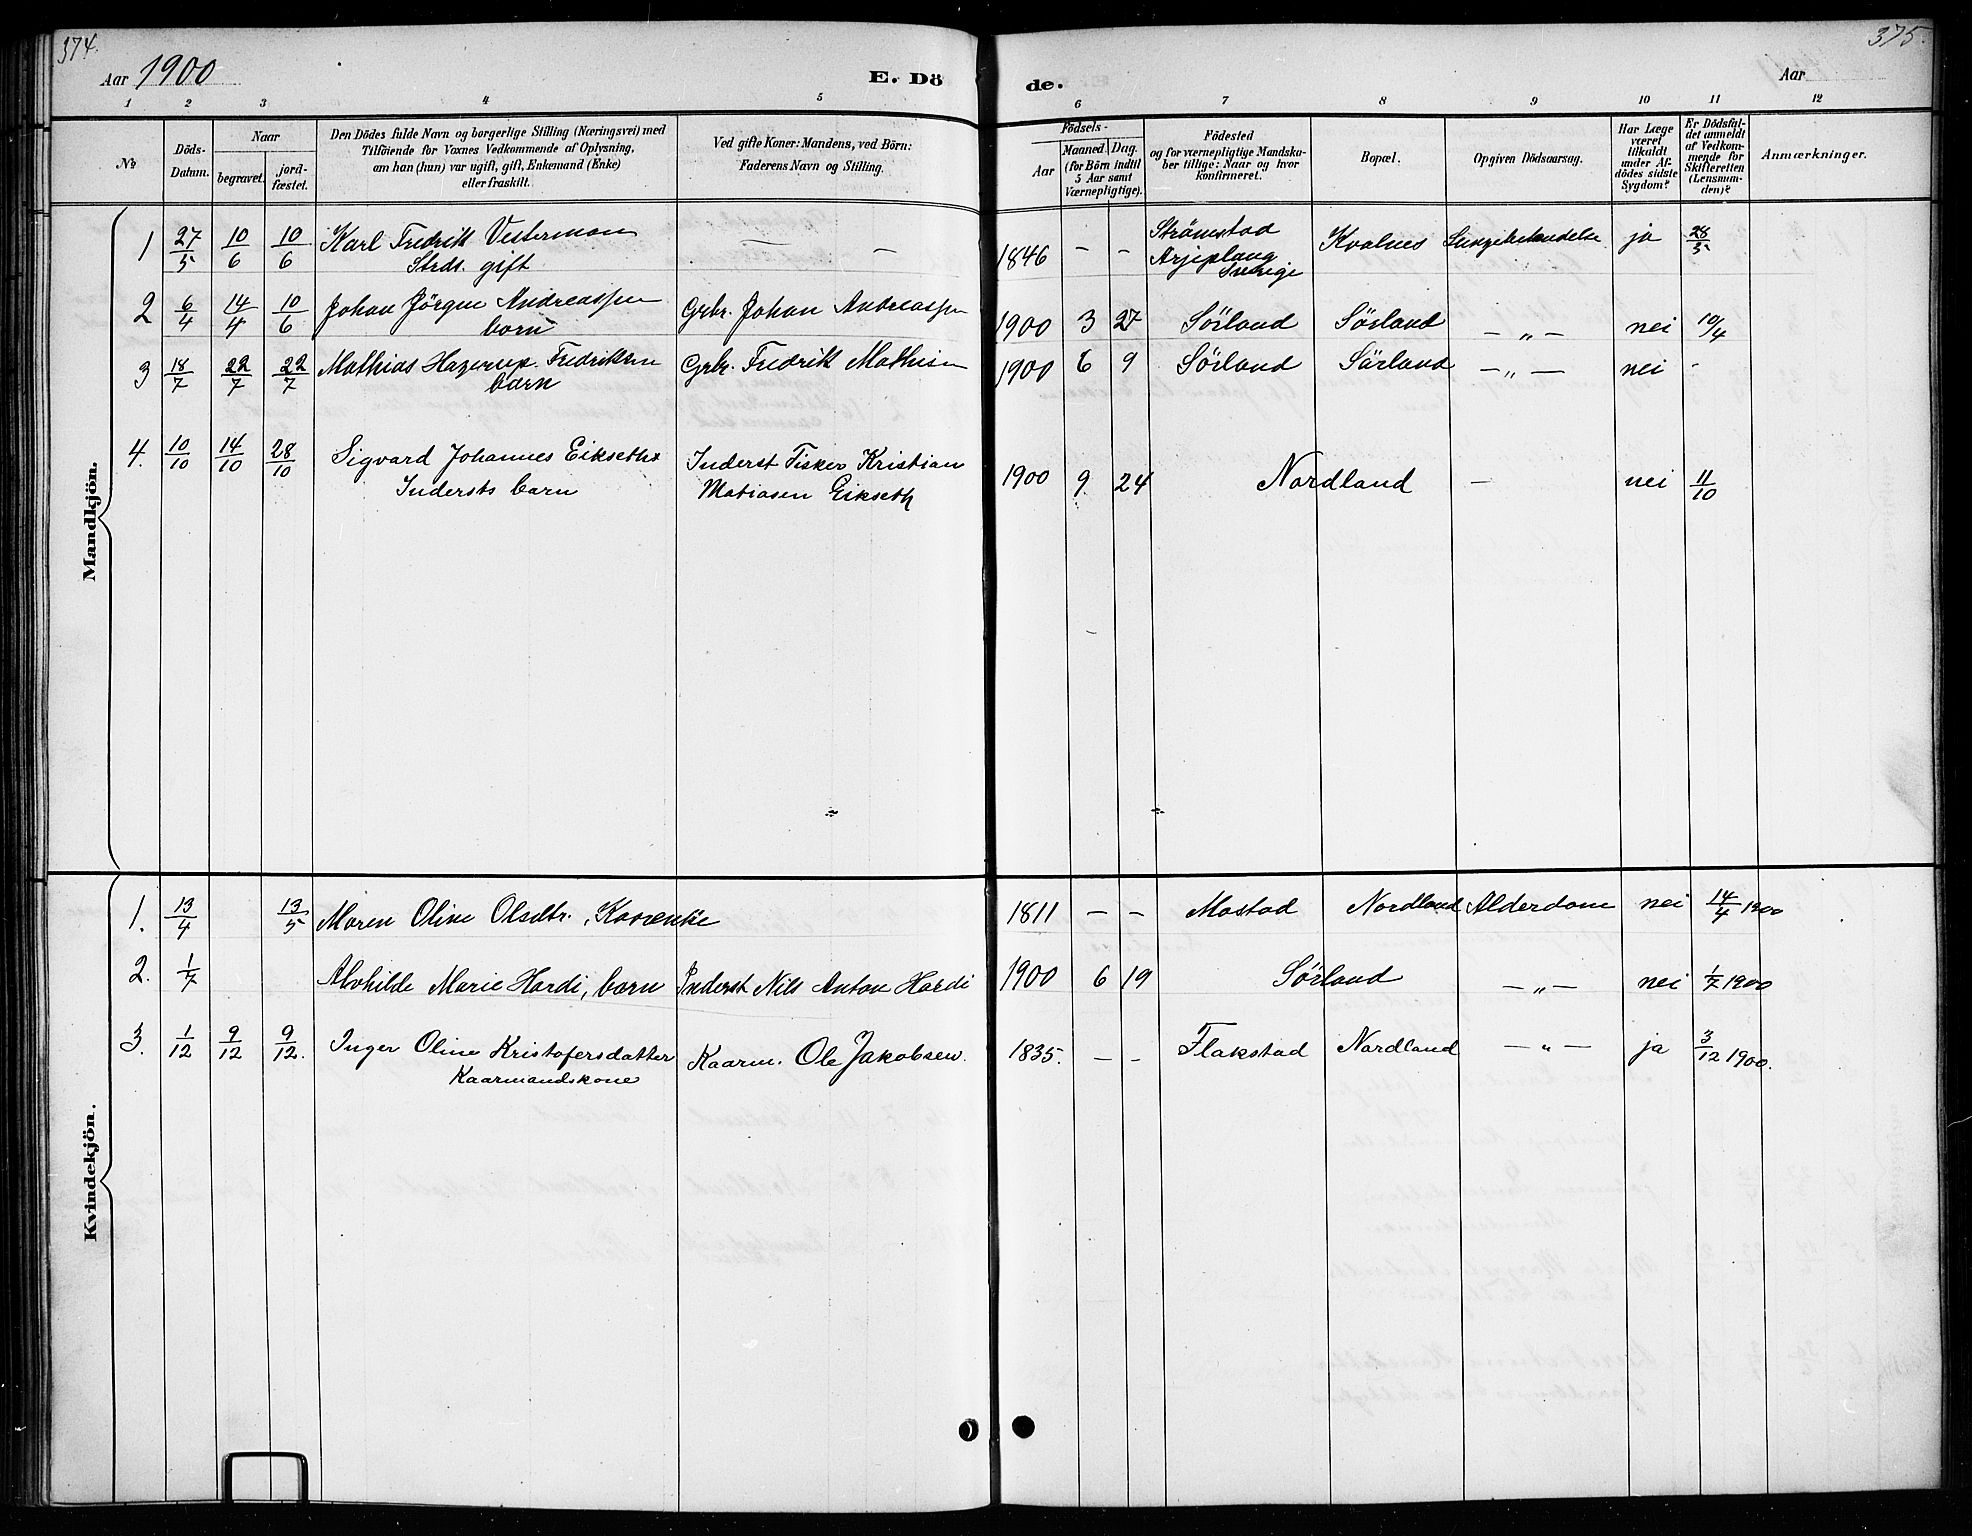 374.
375.
Aar 1900
E. Dö
de.
Aar
1 2 3 4 5 6 7 8 9 10 11 12
No
Döds-
Datum.
Naar
begravet.
jord-
fæstet.
Den Dödes fulde Navn og borgerlige Stilling (Næringsvei) med
Tilföiende for Voxnes Vedkommende af Oplysning,
om han (hun) var ugift, gift, Enkemand (Enke)
eller fraskilt.
Ved gifte Koner: Mandens, ved Börn:
Faderens Navn og Stilling.
Födsels-
Aar
Maaned Dag.
(for Börn indtil
5 Aar samt
Værnepligtige).
Födested
og for værnepligtige Mandska-
ber tillige: Naar og hvor
konfirmeret.
Bopæl.
Opgiven Dödsaarsag.
Har Læge
været
tilkaldt
under Af-
dödes sidste
Sygdom?
Er Dödsfal-
det anmeldt
af Vedkom-
mende for
Skifteretten
(Lensman-
den)?
Anmærkninger.
Mandkjön.
1 27/5 10/6 10/6 Karl Fredrik Vesterman — — 1846 — — Strömstad Kvalnes ja 28/5
Strds. gift Arjeplaug
Sverige
2 6/4 14/4 10/6 Johan Jörgen Andreassen Grbr. Johan Andreassen 1900 3 27 Sörland Sörland — „ — nei 10/4
barn
3 18/7 22/7 22/7 Mathias Hagerup Fredriksen Grbr. Fredrik Mathisen 1900 6 9 Sörland Sörland — „ — nei -
barn
4. 10/10 14/10 28/10 Sigvard Johannes Eikseth Inderst Fisker Kristian 1900 9. 24 Nordland — nei 11/10
Indersts barn Matiasen Eikseth
Kvindekjön.
1. 13/4 13/5 Maren Oline Olsdtr., 1811 — — Mostad Nordland Alderdom nei 14/4 1900
2. 1/7 Alvhilde Marie Hardi, barn Inderst Nils Anton Hardi 1900 6 19 Sörland — „ — nei 1/7 1900
3. 1/12 9/12 9/12. Inger Oline Kristofersdatter Kaarm. Ole Jakobsen. 1835. — — Flakstad Nordland — „ — ja 3/12 1900.
Kaarmandskone